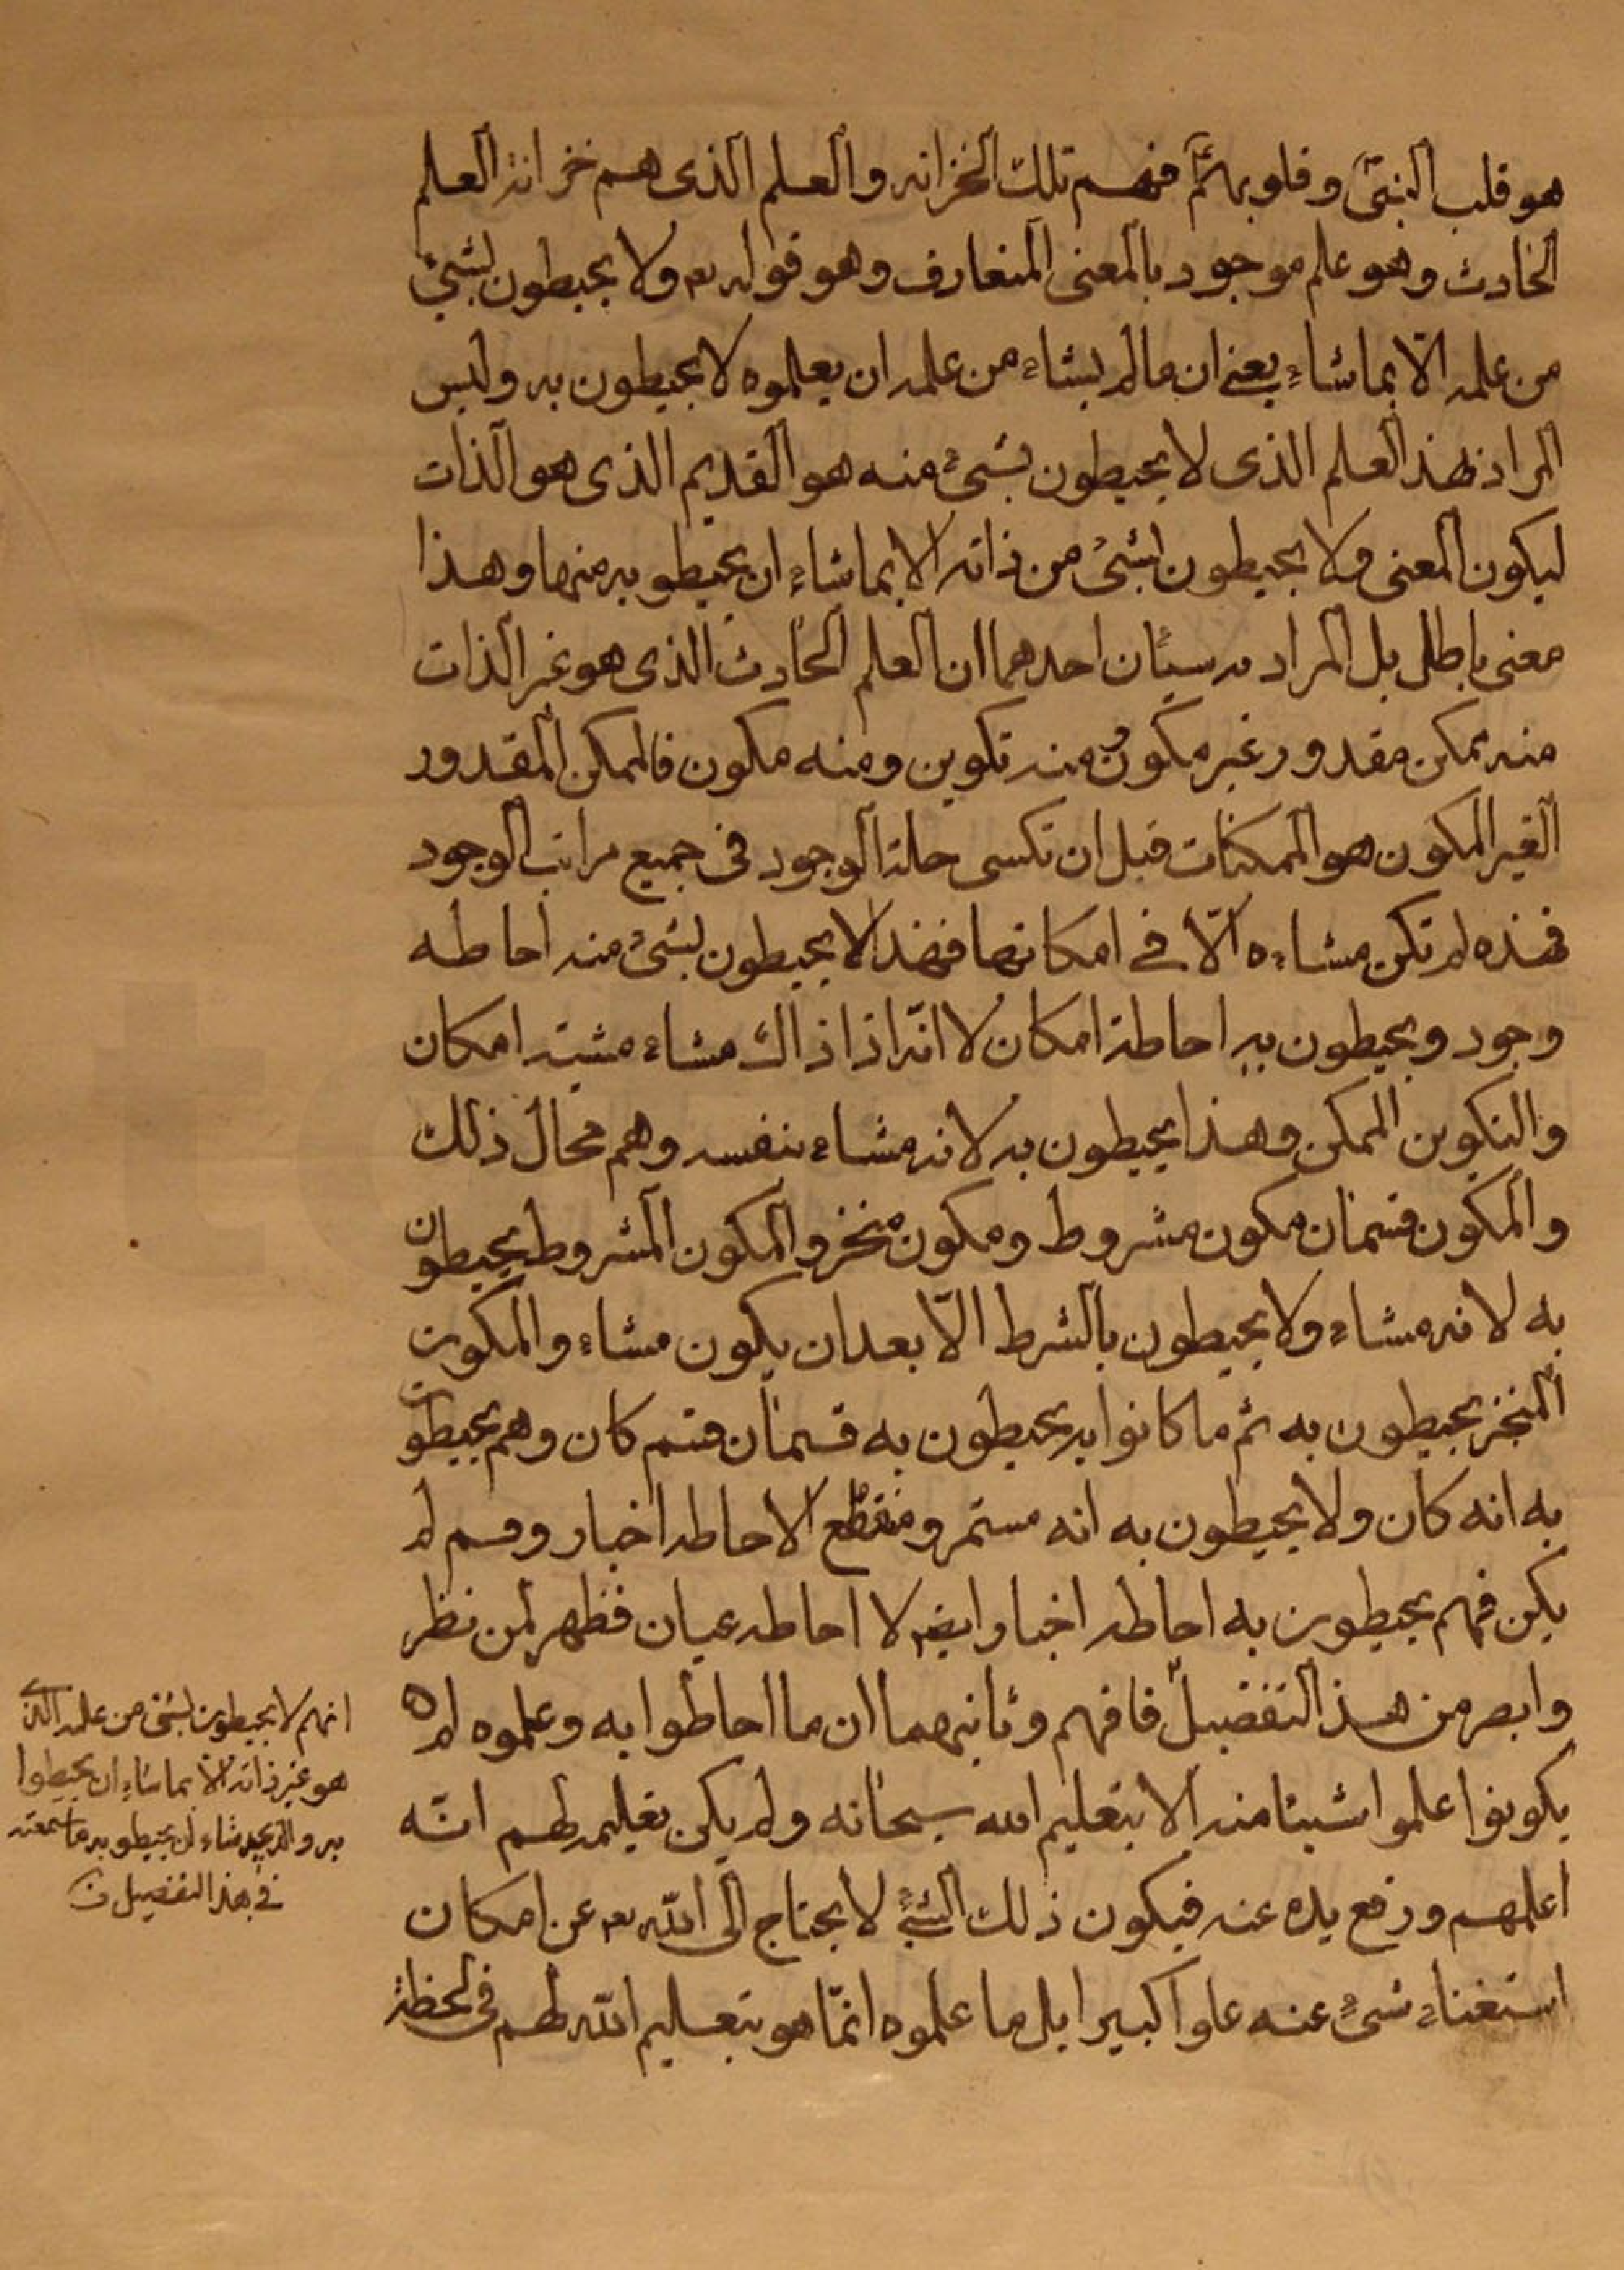 هو قلب النبی و قلوبهم فهم تلک الخزانه و العلم الذی هم خزانة العلم
الحادث و هو علم موجود بالمعنی المتعارف و هو قوله تعہ ولا یحیطون بشیء
من علمه الّا بما شاء یعنی ان ما لم یشاء من علمه ان یعلموه لا یحیطون به و لیس
المراد بهذ العلم الذی لا یحیطون بشیء منه هو القدیم الذی هو الذات
لیکون المعنی و لا یحیطون بشیء من ذاته الا بما شاء ان یحیطو به منها و هذا
معنی باطل بل المراد به سیئان احدهما ان العلم الحادث الذی هو غیر الذات
منه ممکن مقدور غیر مکون و منه تکوین و منه مکون فالممکن المقدور
الغیر المکون هو الممکنات قبل ان تکسی حلة الوجود فی جمیع مراتب الوجود
فهذه لم تکن مشاءه الّا فی امکانها فهذا لا یحیطون بشیء منه احاطه
وجود و یحیطون به احاطة امکان لا انّه اذ اذاک مشاء مشیته امکان
و التکوین الممکن و هذا یحیطون به لانه مشاء بنفسه و هم محال ذلک
و المکون قسمان مکون مشروط و مکون منجز و المکون المشروط یحیطون
به لانه مشاء و لا یحیطون بالشرط الّا بعد ان یکون مشاء و المکون
المنجز یحیطون به ثم ما کانوا به یحیطون به قسمان قسم کان و هم یحیطون
به انه کان و لا یحیطون به انه مستمر و منقطع الا احاطه اخبار و قسم لم
یکن فهم یحیطون به احاطه اخبار ایضا لا احاطه عیان فظهر لمن نظر
و ابصر من هذ التفضیل فافهم و ثانیهما ان ما احاطوا به و علموه لم
یکونوا علموا شیئا منه الا بتعلیم الله سبحانه و لم یکن تعلیمه لهم انّه
اعلمهم و رفع یده عنه فیکون ذلک الشیء لا یحتاج الی الله تعہ عن امکان
استغناء شیء عنه علوا کبیرا بل ما علموه انّما هو بتعلیم الله لهم فی لحظة
انهم لا یحیطون بشیء من علمه الذی
هو غیر ذاته الّا بما شاء ان یحیطوا
به و الذی شاء ان یحیطو به ما سمعته
فی هذا التفضیل